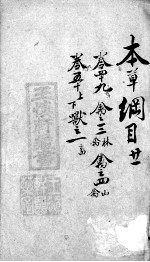 本草綱目廿
卷四十九 禽之三 林禽 禽之四 山禽
卷五十上下 獸之一 畜